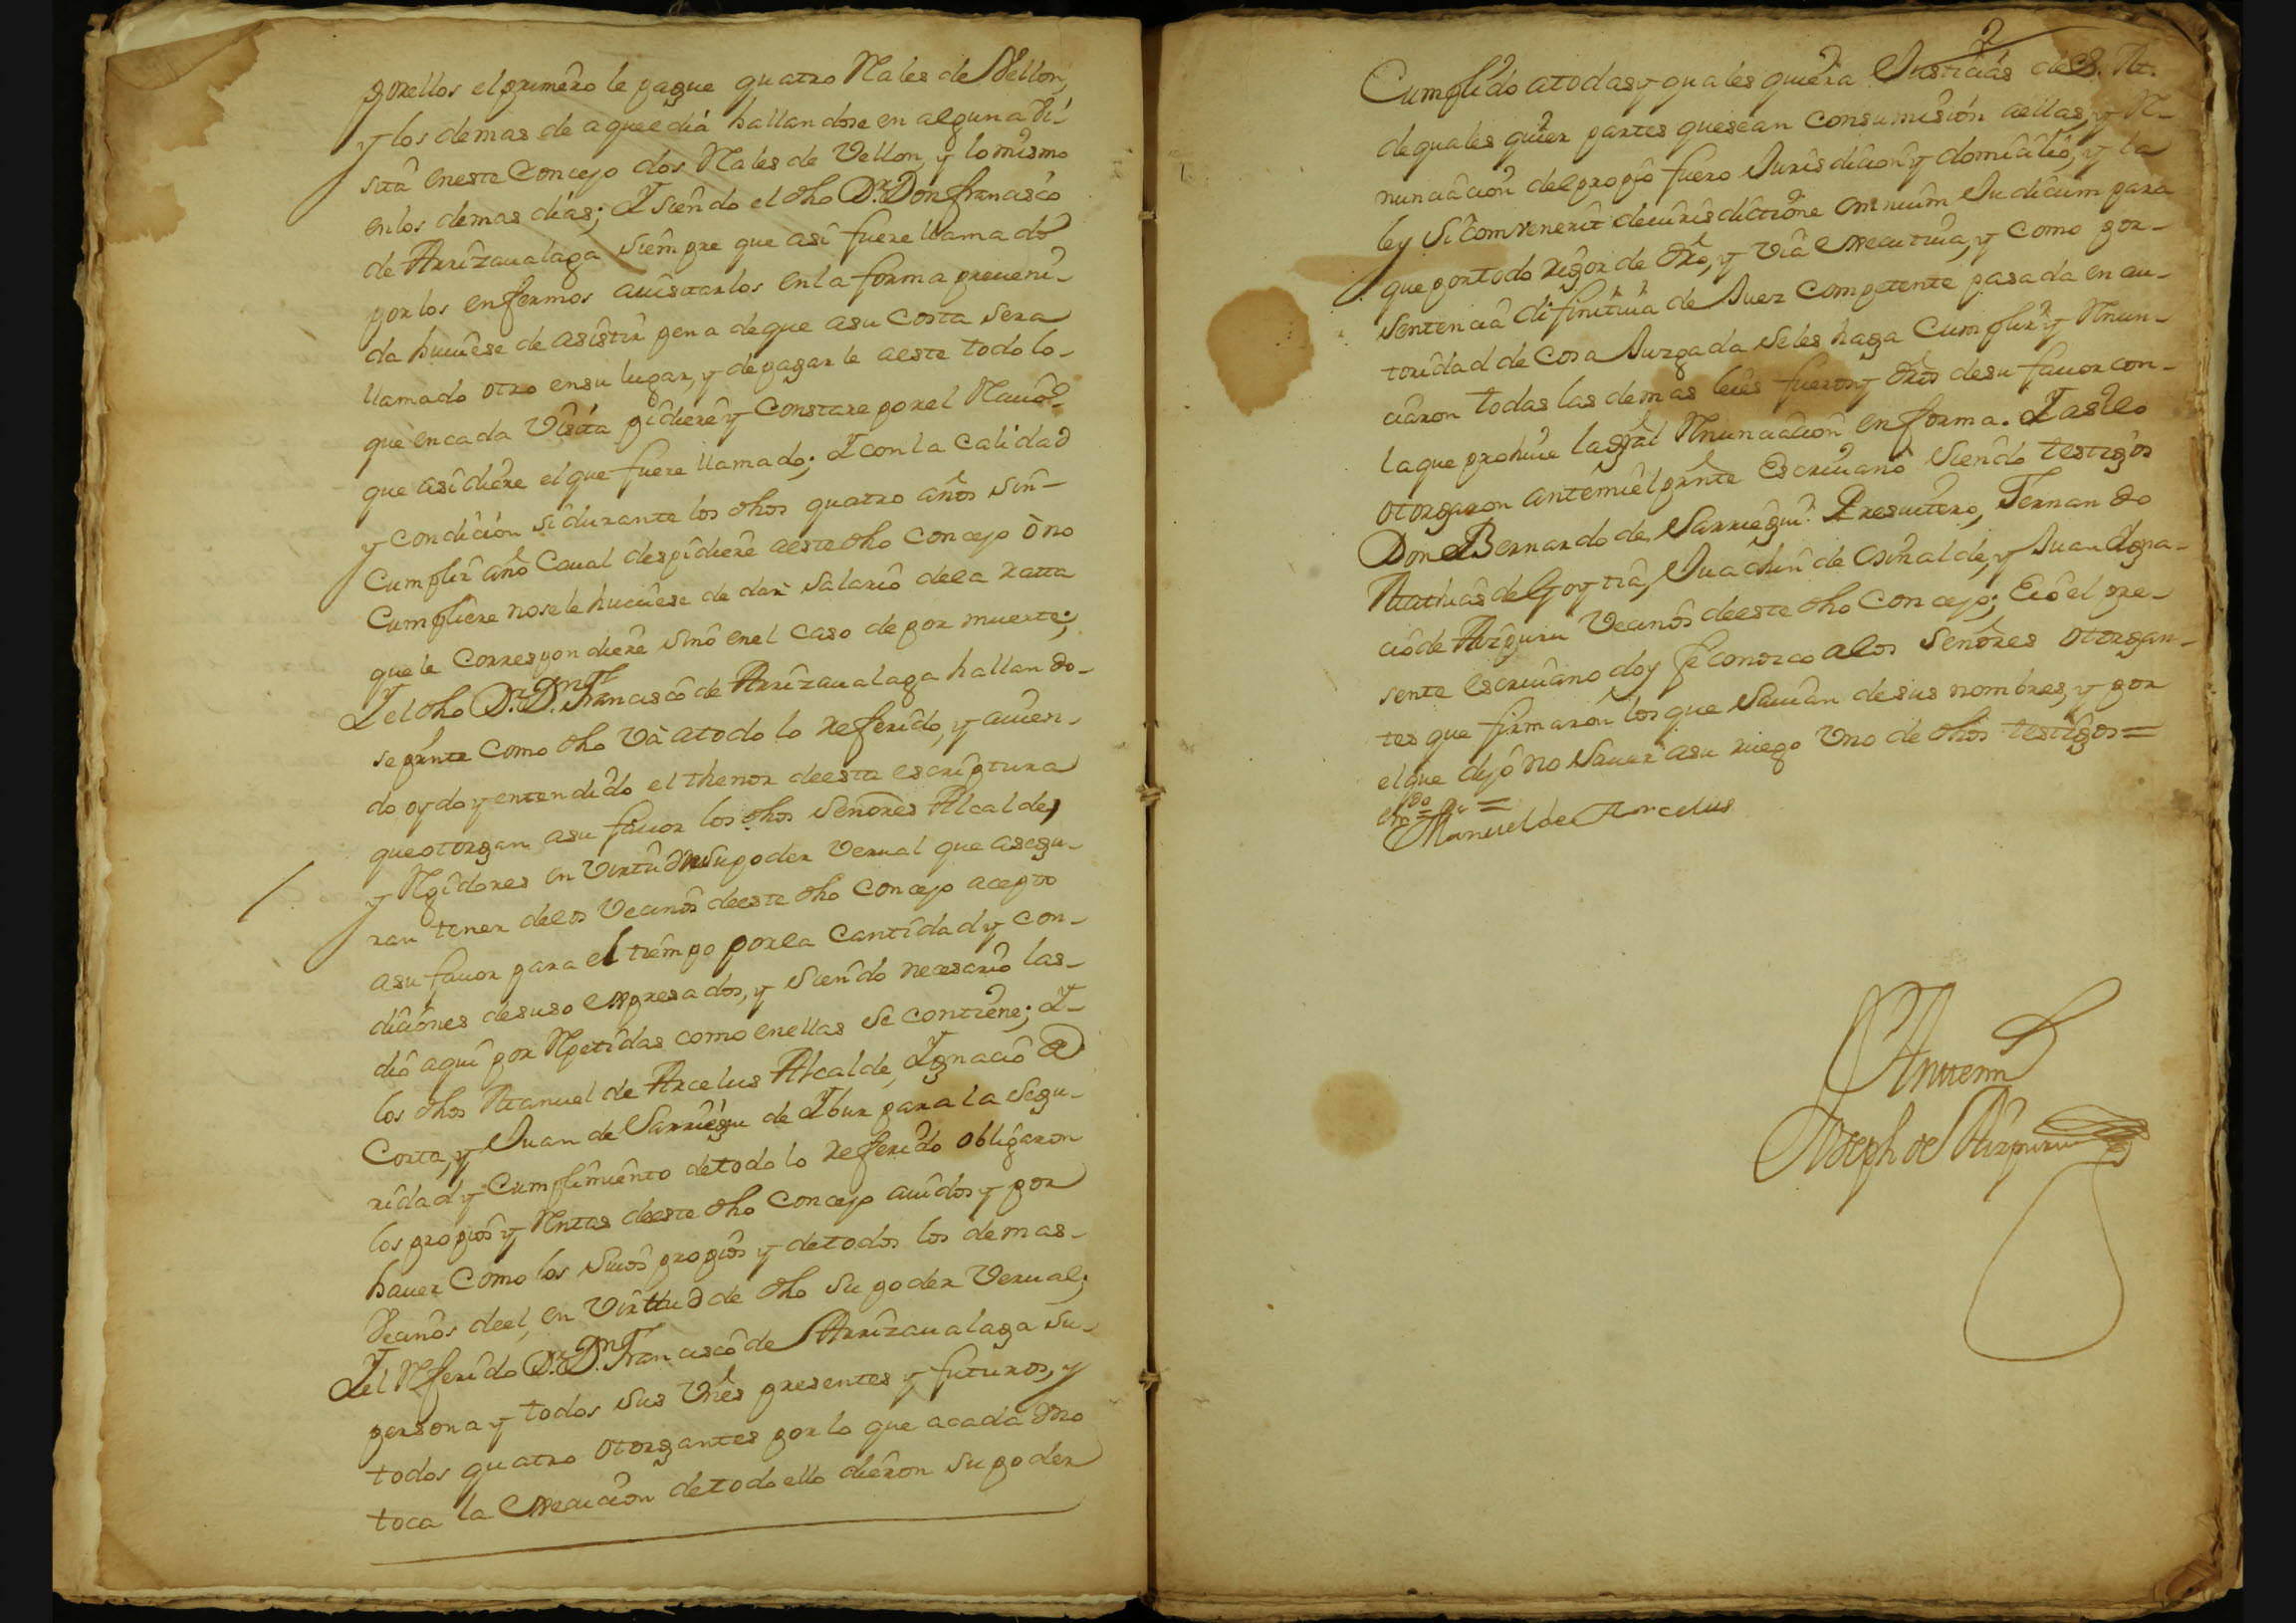 porellos elprimero le pague quatro Rales de Vellon,
y los demas de aquel dia hallandose en alguna Vi-
sita eneste Concejo dos Rales de Vellon, y lo mismo
enlos demas dias; Y siendo el dho Dr. Don francisco
de Arrizaualaga siempre que asi fuere llamado
por los enfermos auisitarlos enla forma preueni-
da huuiese de asistir pena de que asu costa sera
llamado otro ensu lugar, y de pagarle aeste todo lo-
que encada Visita pidiere y Constare porel
que asi diere el que fuere llamado; Y con la Calidad
y condicion si durante los dhos quatro años sin-
Cumplir año Caual despidiere aeste dho Concejo ò no
Cumpliere nosele huuiese de dar salario dela ratta
que le Correspondiere sino enel caso de por muerte;
Y el dho Dr. Dn. Francisco de Arrizaualaga hallando-
se preste como dho Và atodo lo referido, y auien-
do oydo y entendido el thenor deesta escriptura
que otorgan asu fauor los dhos Señores Alcalde,
y Rexidores en Virtud desu poder Verual que asegu-
ran tener delos Vecinos deeste dho Concejo acepto
asu fauor para el tiempo porla Cantidad y con-
diciones desuso expresados, y siendo necesario las-
dio aqui por Repetidas como enellas se contiene; Y-
los dhos Manuel de Arcelus Alcalde, Ygnacio de
Corta, y Juan de Sarriegui de Ybur para la segu-
ridad y Cumplimiento detodo lo referido obligaron
los propios y Rentas deeste dho Concejo auidos y por
hauer Como los suios propios y detodos los demas-
Vecinos deel, en Virttud de dho su poder Verual;
Y el Referido Dr. Dn. Francisco de Arrizaualaga su-
persona y todos sus Vnes presentes y futuros, y
todos quatro otorgantes por lo que acada Vno
toca la execucion detodo ello dieron su poder
2
Cumplido atodas y quales quiera Justicias de S. M.
de quales quier partes que sean Con sumision aellas, y R-
nunciacion del propio fuero Jurisdicion y domicilio, y la
ley Si Combenerit de iurisdictione omnium Judicum para
que por todo rigor de dro, y Via executiua, y Como por-
sentencia difinitiua de Juez Competente pasada en au-
toridad de cosa Juzgada seles haga Cumplir y Renun-
ciaron todas las demas leies fueros y dros desu fauor con-
la que prohiue la gral Renunciacion en forma. Y asi lo
otorgaron antemi el preste Escriuano siendo testigos
Don Bernardo de Sarriegui Presuitero, Fernando
Mathias de Goytia, Juachin de Osinalde, y Juan Ygna-
cio de Aizpuru Vecinos deeste dho Concejo; E io el pre-
sente escriuano doy fe conozco alos Señores otorgan-
tes que firmaron los que Sauian de sus nombres, y por
el que dijo no Sauer asu ruego Vno de dhos testigos=
Manuel de Arcelus
Antemi
Joseph de Aizpuru